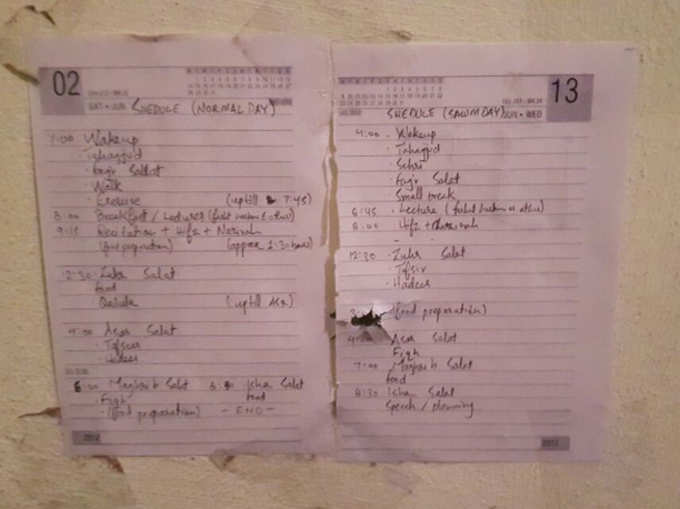 02
SAT • JUN
SHEDULE (NORMAL DAY)
Wakeup
Tahajjud
Fajr Sallat
Walk
Exercise (uptill 7:45)
8:00 Breakfast / Lectures
9:15 Recitation + Hifz +
(food preparation) (approx 2:30 hours)
12:30 Zuhr Salat
food
Qailula (uptill ASR)
Asar Salat
Tafseer
Hadees
6:00 Maghrib Salat 8:30 Isha Salat
Fiqh food
(food preparation) - END -
2012
13
JUN • WED
SHEDULE (SAWM DAY)
4:00 Wakeup
Tahajjud
Sehri
Fajr Salat
Small break
6:45 Lecture
8:00 Hifz +
12:30 Zuhr Salat
Tafsir
Hadees
(food preparation)
Asar Salat
Fiqh
7:00 Maghrib Salat
food
8:30 Isha Salat
Speech / planning
2012